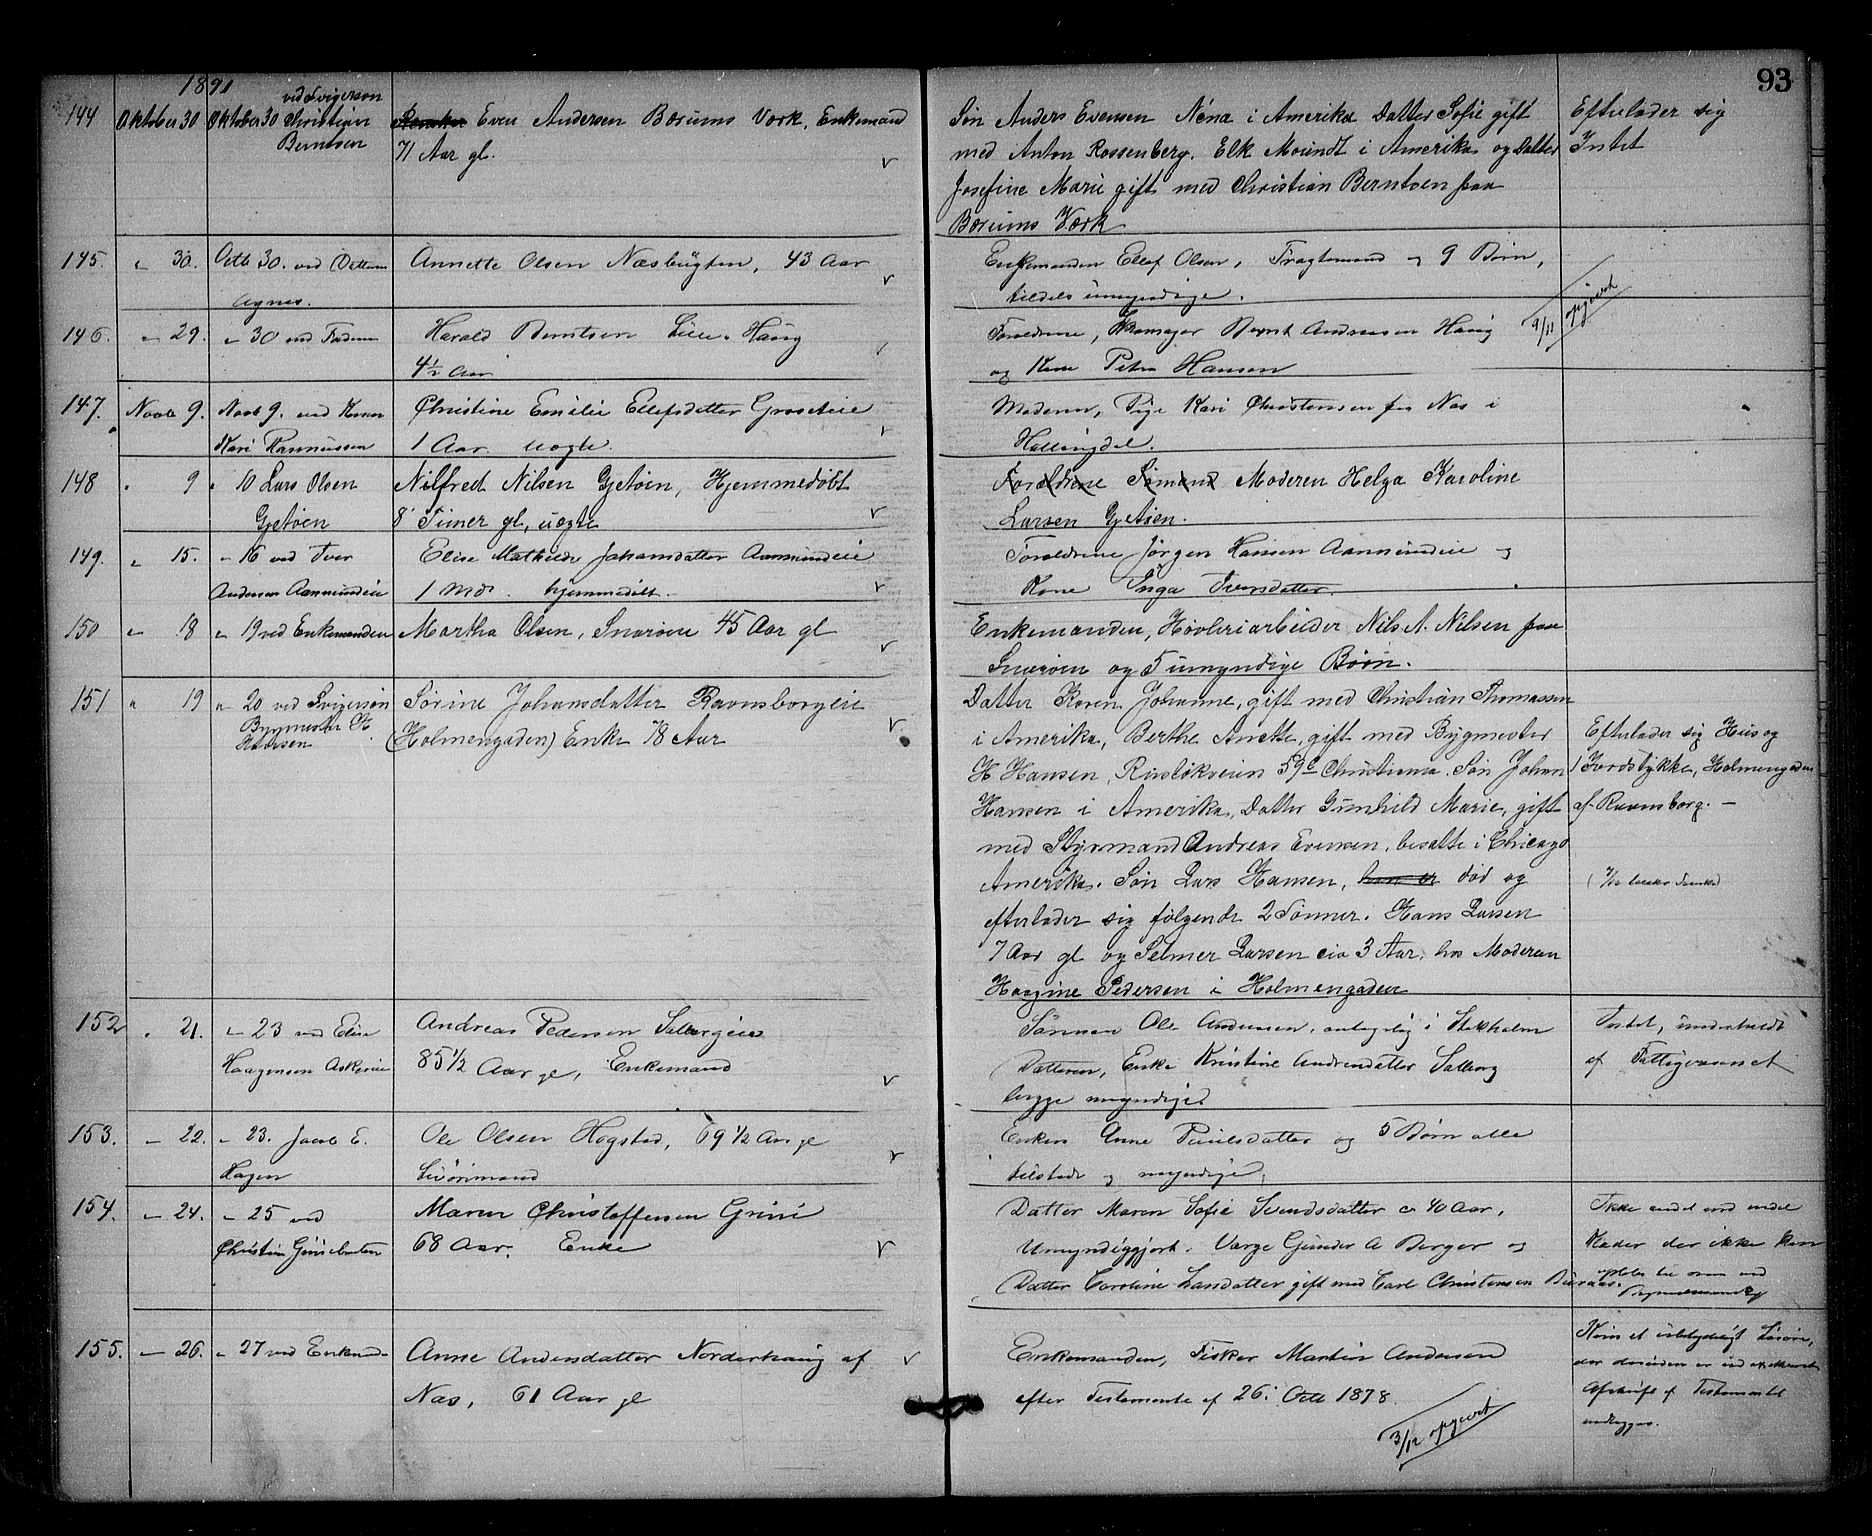 93
1891
144 Oktober 30 Oktober 30 ved Svigersøn Christian Berntsen
Even Andersen Bærums Værk, Enkemand
71 Aar gl.
Søn Anders Evensen Néna i Amerika Datter Sofie gift
med Anton Rossenberg, Elk Moundt i Amerika og Datter
Josefine Marie gift med Christian Berntsen paa
Bærums Værk
Efterlader sig
Intet
145 " 30. Octb 30. ved Datteren
Agnes.
Annette Olsen Næsbugten, 43 Aar
Enkemanden Ellef Olsen, Fragtemand og 9 Børn,
tildels umyndige.
9/11 opgjort
146. " 29. " 30 ved Faderen
Harald Berntsen Lille-Haug
4½ Aar
Forældrene, Skomager Bernt Andreasen Haug
og Kone Petra Hansen
147. Novb 9. Novb 9. ved Konen
Kari Rasmussen
Christine Emilie Ellefsdatter Groseteie
1 Aar uægte.
Moderen, Pige Kari Christensen fra Næs i
Hallingdal.
148 " 9 " 10 Lars Olsen
Gjetøen
Nilfred Nilsen Gjetøen, Hjemmedøbt
8 Timer gl, uægte
Forældrene Sømand Moderen Helga Karoline
Larsen Gjetøen.
149. " 15. " 16 ved Iver
Andersen Aamundeie
Elise Mathilde Johansdatter Aamundeie
1 Md. hjemmedøbt.
Forældrene Jørgen Hansen Aamundeie og
Kone Inga Iversdatter.
150 " 18 " 19 ved Enkemanden
Martha Olsen, Snarøen 45 Aar gl
Enkemanden, Høvleriarbeider Nils A. Nilsen paa
Snarøen og 5 umyndige Børn.
151 " 19 " 20 ved Svigersøn
Bygmester H.
Hansen
Sørine Johansdatter Ravnsborgeie
(Holmengaden) Enke 78 Aar
Datter Karen Johanne, gift med Christian Thomassen
i Amerika, Berthe Anette, gift med Bygmester
H Hansen, Rusløkveien 59c Christiania. Søn Johan
Hansen i Amerika, Datter Gunhild Marie, gift
med Styrmand Andreas Evensen, bosatte i Chicago
Amerika. Søn Lars Hansen, han er død og
efterlader sig følgende 2 Sønner. Hans Larsen
7 Aar gl og Selmer Larsen cia 3 Aar, hos Moderen
Haagine Pedersen i Holmengaden
Efterlader sig Hus og
1 Jordstykke, Holmengaden
af Ravnsborg. —
152 " 21. " 23 ved Edise
Haagensen Askereie
Andreas Pedersen Solbergeie
85½ Aar gl, Enkemand
Sønnen Ole Andersen, antagelig i Stokholm
Datteren, Enke Kristine Andrendatter Solberg
begge myndige.
Intet, underholdt
af Fattigvæsenet
153. " 22. " 23. Jacob E.
Hagen
Ole Olsen Høgstad, 69½ Aar gl
Livørimand
Enken Anne Paulsdatter og 5 Børn alle
tilstede og myndige.
154. " 24. " 25 ved
Christian Grinibraaten
Maren Christoffersen Grini
68 Aar. Enke
Datter Maren Sofie Svendsdatter ca 40 Aar,
Umyndiggjort. Værge Gunder A Berger og
Datter Caroline Larsdatter gift med Carl Christensen Buraas.
Ikke andet end endel
Klæder der ikke kan
155. " 26. " 27 ved Enkemd
Anne Andersdatter Norderhaug af
Næs, 61 Aar gl
Enkemanden, Fisker Martin Andersen
efter Testamente af 26. Octb 1878.
3/12 opgjort
Kun et ubetydeligt Løsøre,
Afskrift af Testamentet
vedlægges.